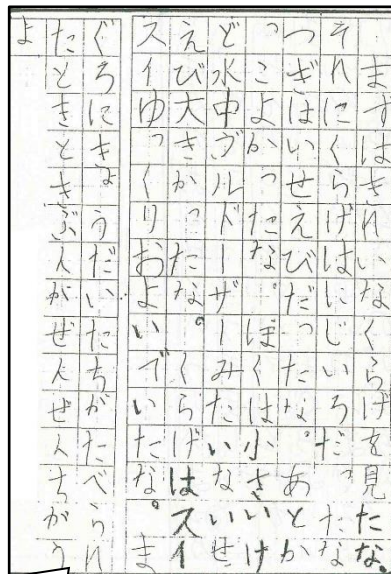 ますはきれいなくらげを見たな。
それにくらげはにじいろだったな
つぎはいせえびだったな。あとか
っこよかったな。ぼくは小さいけ
ど水中ヴルドーザーみたいないせ
えび大きかったな。くらげはスイ
スイゆっくりおよいでいたな。ま
ぐろにきょうだいたちがたべられ
たときときぶんがぜんぜんちがう
よ